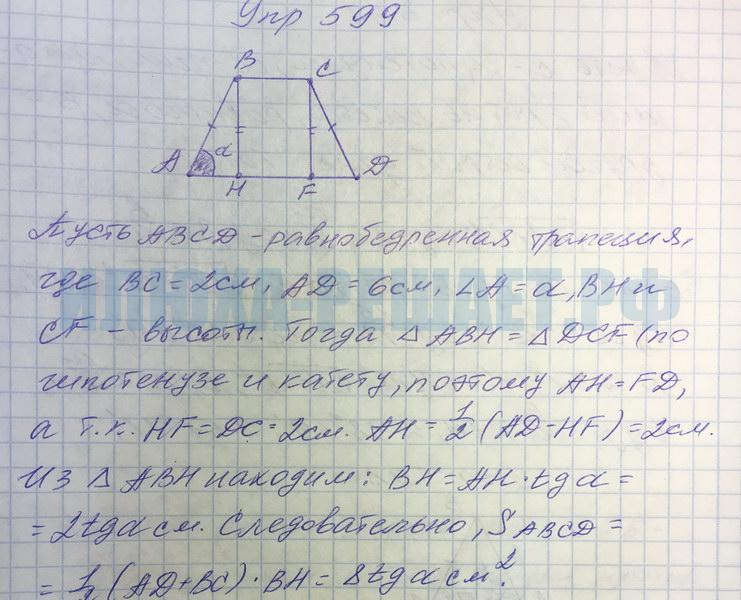 Упр 599
B C
α
A H F D
Пусть ABCD - равнобедренная трапеция,
где BC = 2см, AD = 6см, ∠A = α, BH и
CF - высоты. Тогда △ ABH = △ DCF (по
гипотенузе и катету, поэтому AH = FD,
а т.к. HF = DC = 2см. AH = 1/2 (AD - HF) = 2см.
Из △ ABH находим: BH = AH · tg α =
= 2tg α см. Следовательно, S ABCD =
= 1/2 (AD + BC) · BH = 8tg α см².
ШКОЛА-РЕШАЕТ.РФ